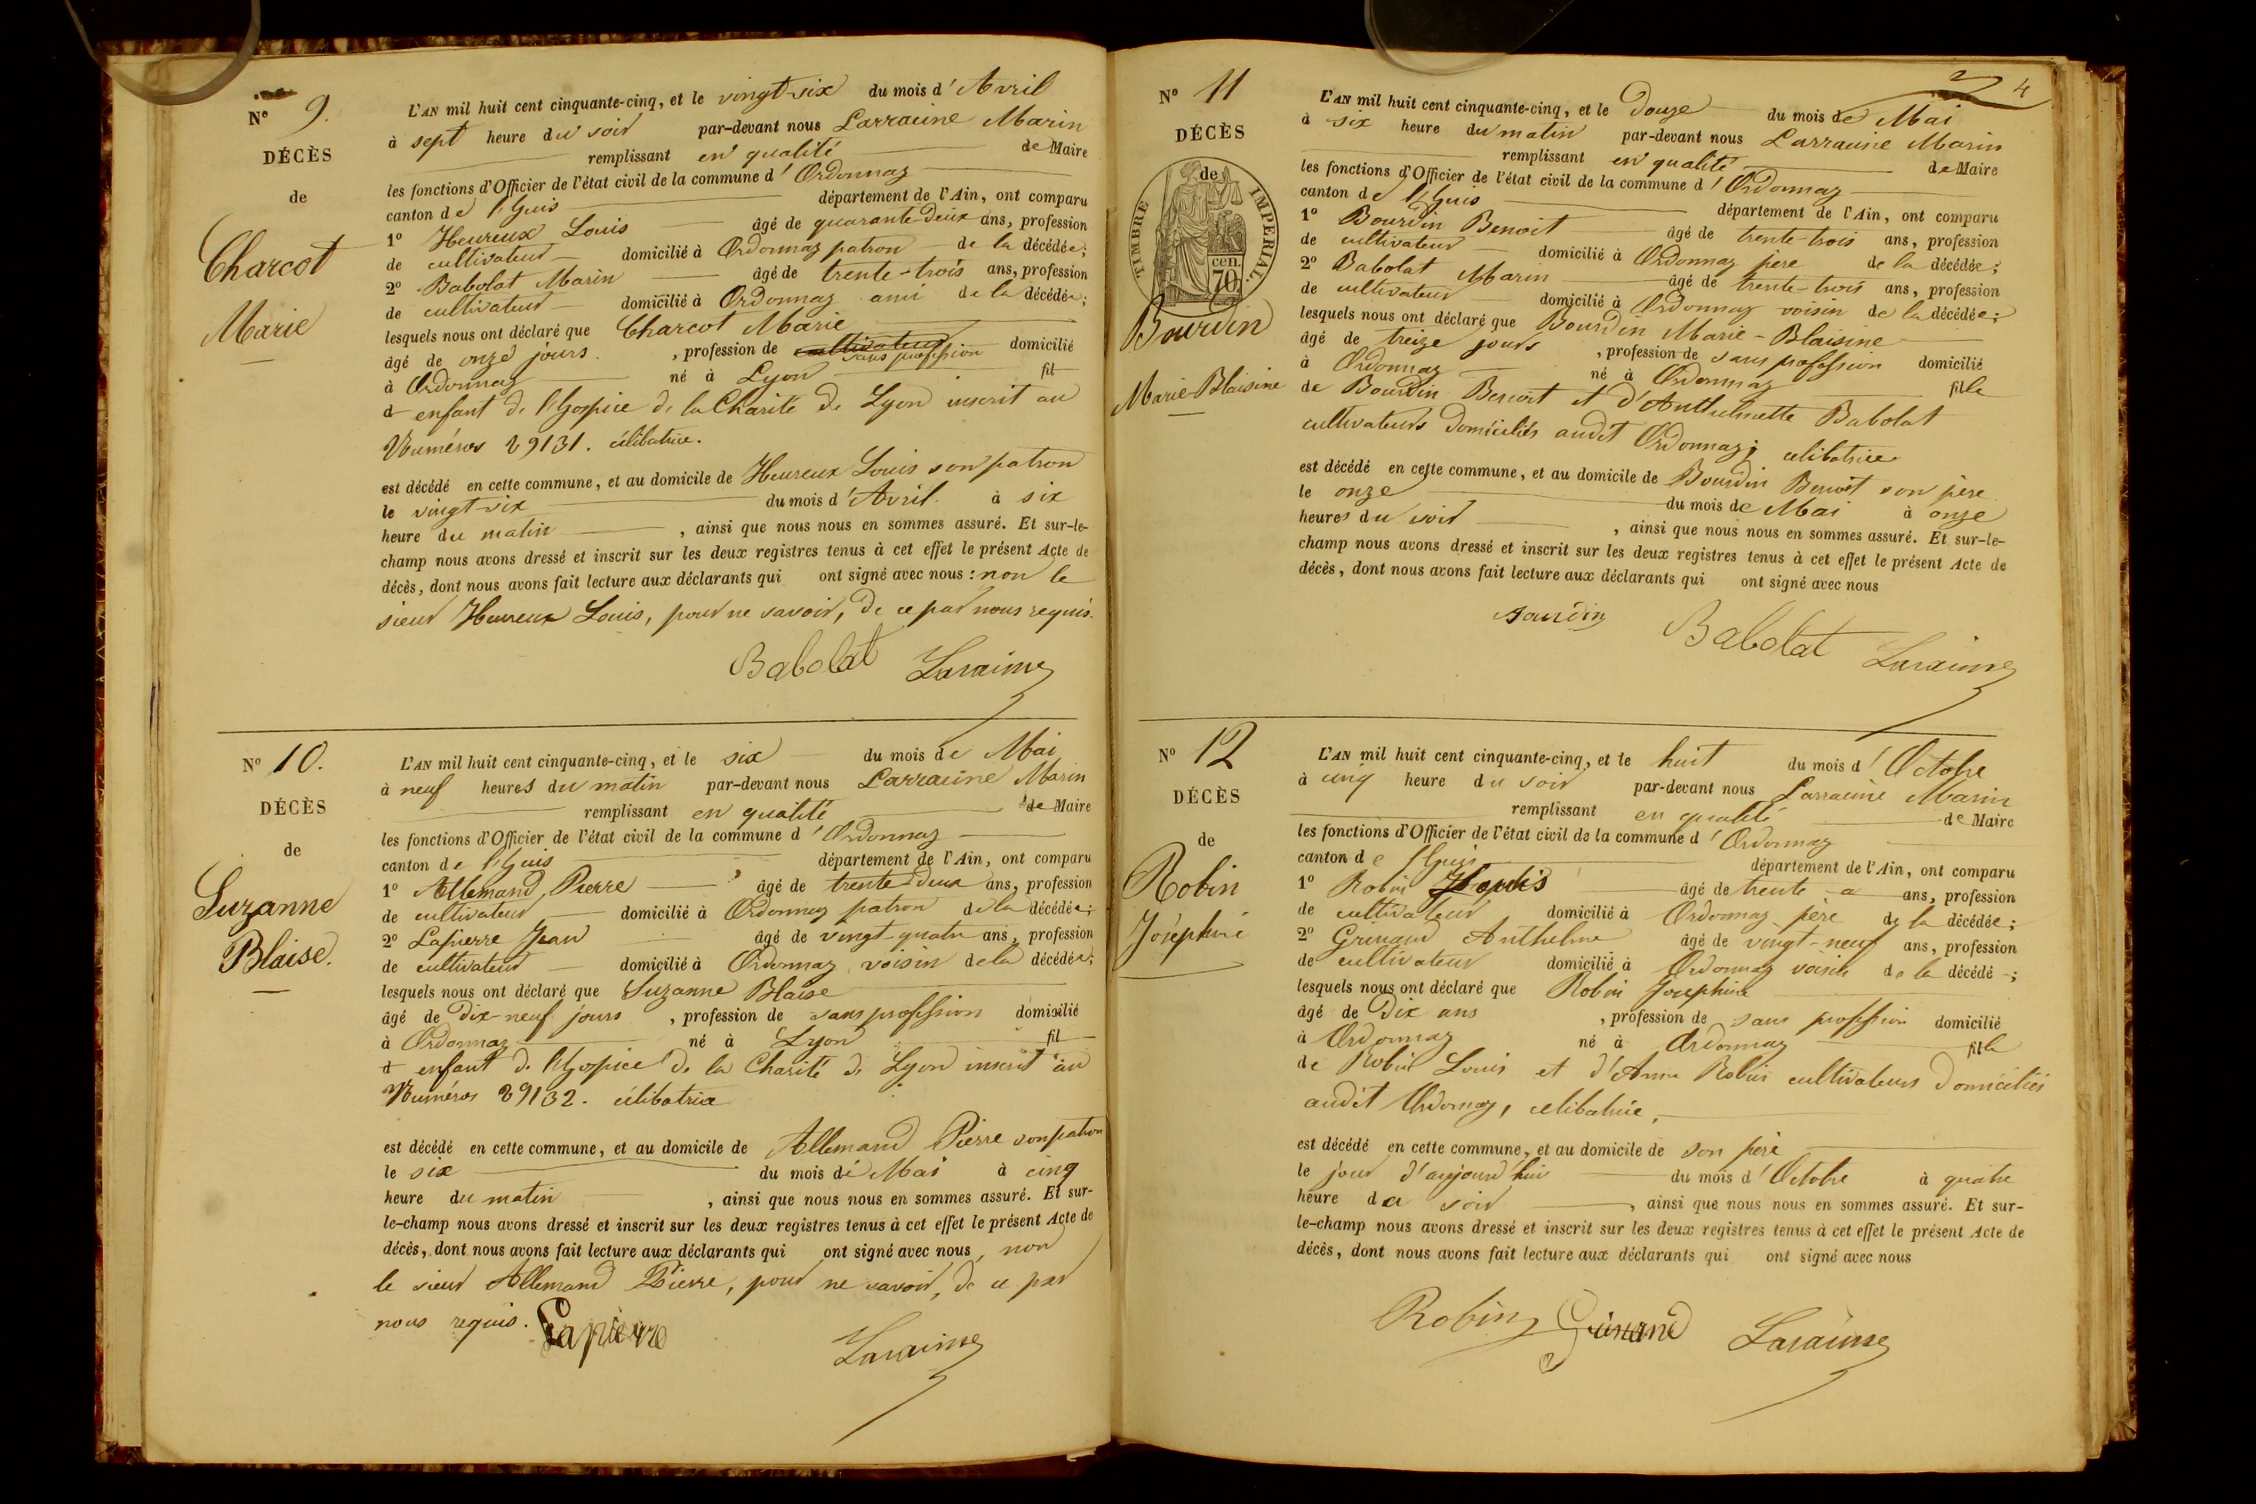 N° 9.
DÉCÈS
de
Charcot
Marie
L'AN mil huit cent cinquante-cinq, et le vingt-six du mois d'Avril
à sept heure du soir par-devant nous Larraine Marin
remplissant en qualité de Maire
les fonctions d'Officier de l'état civil de la commune d'Ordonnaz
canton de l'huis département de l'Ain, ont comparu
1° Heureux Louis âgé de quarante-deux ans, profession
de cultivateur domicilié à Ordonnaz patron de la décédée;
2° Babolat Marin âgé de trente-trois ans, profession
de cultivateur domicilié à Ordonnaz ami de la décédée;
lesquels nous ont déclaré que Charcot Marie
âgé de onze jours, profession de cultivateur sans profession domicilié
à Ordonnaz né à Lyon fil
d enfant de l'hospice de la Charité de Lyon inscrit au
Numéros 29131. célibatrice.
est décédé en cette commune, et au domicile de Heureux Louis son patron
le vingt-six du mois d'Avril à six
heure du matin, ainsi que nous nous en sommes assuré. Et sur-le-
champ nous avons dressé et inscrit sur les deux registres tenus à cet effet le présent Acte de
décès, dont nous avons fait lecture aux déclarants qui ont signé avec nous : non le
sieur Heureux Louis, pour ne savoir, de ce par nous requis.
Babolat Laraine
N° 10.
DÉCÈS
de
Suzanne
Blaise.
L'AN mil huit cent cinquante-cinq, et le six du mois de Mai
à neuf heures du matin par-devant nous Larraine Marin
remplissant en qualité de Maire
les fonctions d'Officier de l'état civil de la commune d'Ordonnaz
canton de l'huis département de l'Ain, ont comparu
1° Allemand Pierre âgé de trente deux ans, profession
de cultivateur domicilié à Ordonnaz patron de la décédée;
2° Lapierre Jean âgé de vingt-quatre ans, profession
de cultivateur domicilié à Ordonnaz voisin de la décédée;
lesquels nous ont déclaré que Suzanne Blaise
âgé de Dix-neuf jours, profession de sans profession domicilié
à Ordonnaz né à Lyon fil
d enfant de l'hospice de la Charité de Lyon inscrit au
Numéros 29132. célibatrice
est décédé en cette commune, et au domicile de Allemand Pierre son patron
le six du mois de Mai à cinq
heure du matin, ainsi que nous nous en sommes assuré. Et sur-
le-champ nous avons dressé et inscrit sur les deux registres tenus à cet effet le présent Acte de
décès, dont nous avons fait lecture aux déclarants qui ont signé avec nous, non
le sieur Allemand Pierre, pour ne savoir, de ce par
nous requis. Lapierre
Laraine
4
N° 11
DÉCÈS
de
TIMBRE IMPERIAL.
70 cen.
Bourdin
Marie-Blaisine
L'AN mil huit cent cinquante-cinq, et le Douze du mois de Mai
à six heure du matin par-devant nous Larraine Marin
remplissant en qualité de Maire
les fonctions d'Officier de l'état civil de la commune d'Ordonnaz
canton de l'huis département de l'Ain, ont comparu
1° Bourdin Benoit âgé de trente-trois ans, profession
de cultivateur domicilié à Ordonnaz père de la décédée;
2° Babolat Marin âgé de trente-trois ans, profession
de cultivateur domicilié à Ordonnaz voisin de la décédée;
lesquels nous ont déclaré que Bourdin Marie-Blaisine
âgé de treize jours, profession de sans profession domicilié
à Ordonnaz né à Ordonnaz fille
de Bourdin Benoit et d'Anthelmette Babolat
cultivateurs domiciliés audit Ordonnaz; celibatrice
est décédé en cette commune, et au domicile de Bourdin Benoit son père
le onze du mois de Mai à onze
heures du soir, ainsi que nous nous en sommes assuré. Et sur-le-
champ nous avons dressé et inscrit sur les deux registres tenus à cet effet le présent Acte de
décès, dont nous avons fait lecture aux déclarants qui ont signé avec nous
Bourdin Babolat Laraine
N° 12
DÉCÈS
de
Robin
Joséphine
L'AN mil huit cent cinquante-cinq, et le huit du mois d'Octobre
à cinq heure du soir par-devant nous Larraine Marin
remplissant en qualité de Maire
les fonctions d'Officier de l'état civil de la commune d'Ordonnaz
canton de l'huis département de l'Ain, ont comparu
1° Robin Louis âgé de trente-a ans, profession
de cultivateur domicilié à Ordonnaz père de la décédée;
2° Grinand Anthelme âgé de vingt-neuf ans, profession
de cultivateur domicilié à Ordonnaz voisin de la décédé;
lesquels nous ont déclaré que Robin Josephine
âgé de Dix ans, profession de sans profession domicilié
à Ordonnaz né à Ordonnaz fille
de Robin Louis et d'Anne Robin cultivateurs domiciliés
audit Ordonnaz, celibatrice,
est décédé en cette commune, et au domicile de son père
le jour d'aujourd'hui du mois d'Octobre à quatre
heure du soir, ainsi que nous nous en sommes assuré. Et sur-
le-champ nous avons dressé et inscrit sur les deux registres tenus à cet effet le présent Acte de
décès, dont nous avons fait lecture aux déclarants qui ont signé avec nous
Robin Grinand Laraine